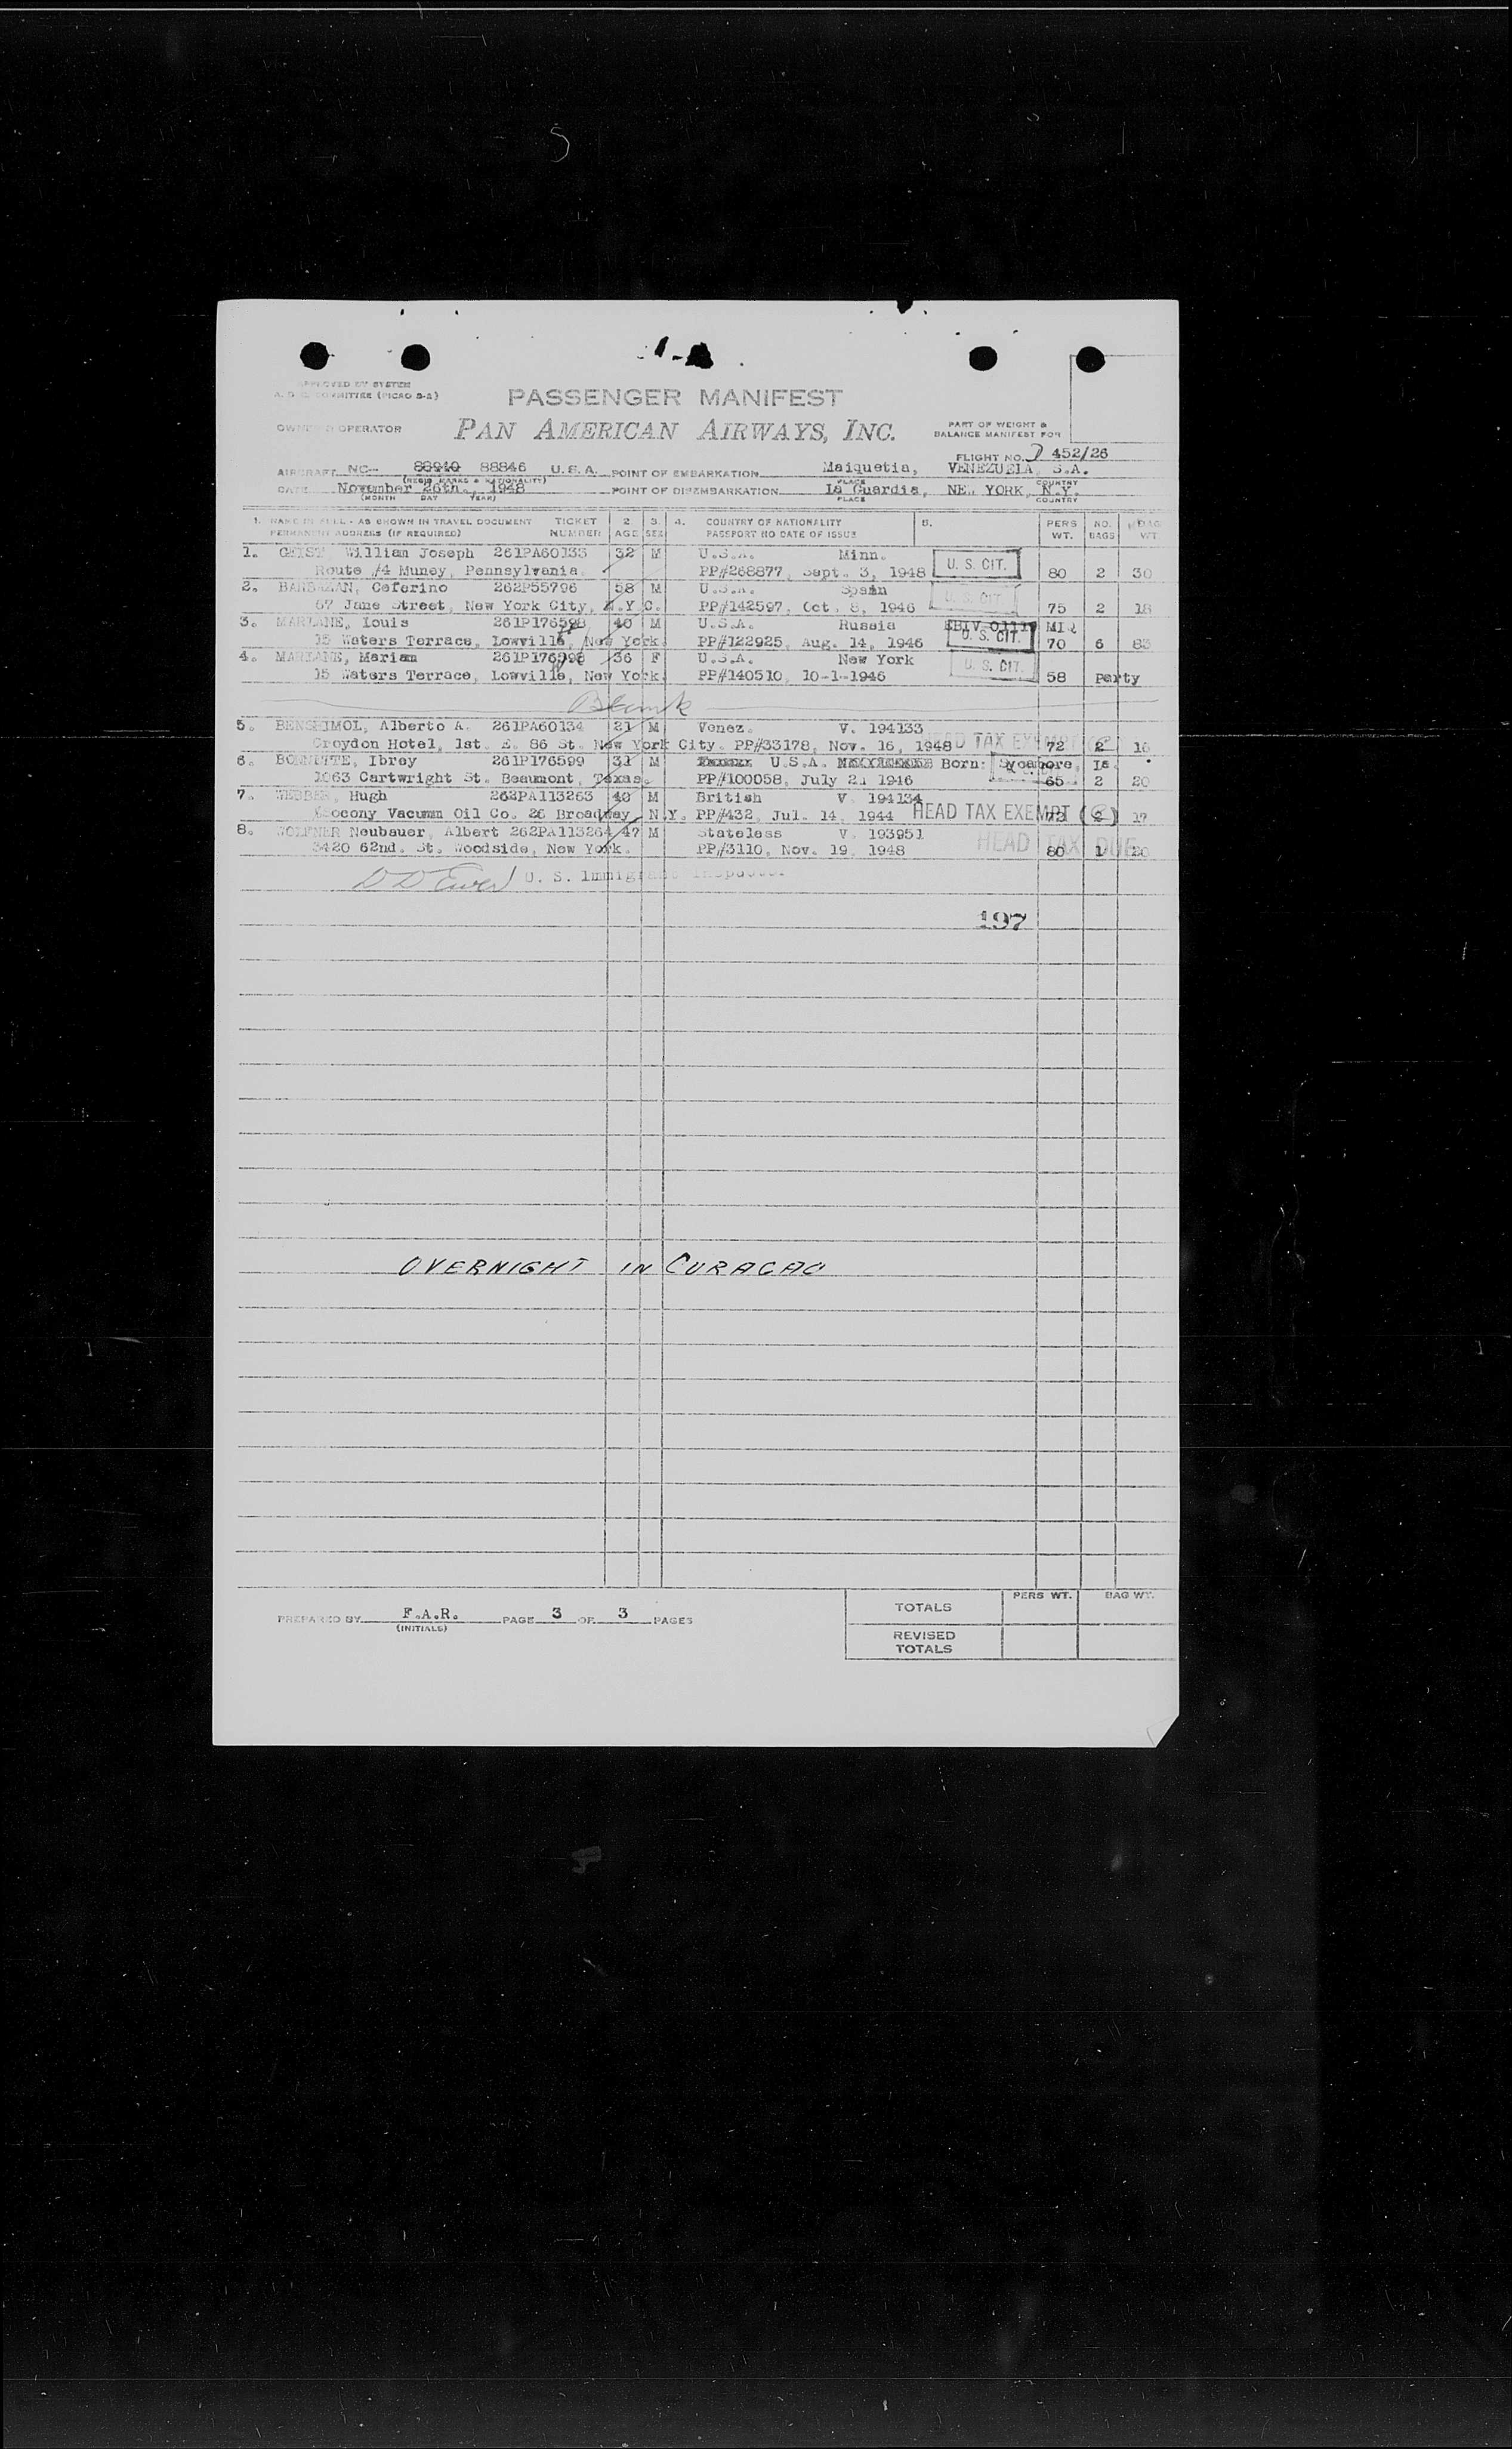 APPROVED BY SYSTEM
A. D. C. COMMITTEE (PICAO 8-2)
PASSENGER MANIFEST
OWNER OR OPERATOR PAN AMERICAN AIRWAYS, INC.
PART OF WEIGHT &
BALANCE MANIFEST FOR
FLIGHT NO. 452/26
AIRCRAFT NC- 88940 88846 U.S.A. POINT OF EMBARKATION Maiquetia, VENEZUELA, S.A.
(REGIS MARKS & NATIONALITY) PLACE COUNTRY
DATE November 26th., 1948 POINT OF DISEMBARKATION La Guardia, NEW YORK, N.Y.
(MONTH DAY YEAR) PLACE COUNTRY
1. NAME IN FULL - AS SHOWN IN TRAVEL DOCUMENT TICKET 2 3. 4. COUNTRY OF NATIONALITY 5. PERS NO. BAG
PERMANENT ADDRESS (IF REQUIRED) NUMBER AGE SEX PASSPORT NO DATE OF ISSUE WT. BAGS WT.
1. GEIST William Joseph 261PA60133 32 M U.S.A. Minn. U. S. CIT.
Route #4 Muney, Pennsylvania. PP#268877, Sept. 3, 1948 80 2 30
2. Ceferino 262P55796 58 M U.S.A. Spain U. S. CIT.
67 Jane Street, New York City, N.Y.C. PP#142597, Oct. 8, 1946 75 2 18
3. Louis 261P176598 40 M U.S.A. Russia
15 Waters Terrace, Lowville, New York. PP#122925, Aug. 14, 1946 U. S. CIT. 70 6 83
4. Mariam 261P176598 36 F U.S.A. New York U. S. CIT.
15 Waters Terrace, Lowville, New York. PP#140510, 10-1-1946 58 Party
Blank
5. Alberto A. 261PA60134 21 M Venez. V. 194133
Croydon Hotel, 1st. E. 86 St. New York City. PP#33178, Nov. 16, 1948 HEAD TAX EXEMPT 72 2 16
6. Ibrey 261P176599 31 M U.S.A. Born: Sycamore, Ia.
1063 Cartwright St. Beaumont, Texas. PP#100058, July 2, 1946 65 2 20
7. WEBBER, Hugh 262PA113263 40 M British V. 194134
Socony Vacumn Oil Co. 26 Broadway N.Y. PP#432, Jul. 14, 1944 HEAD TAX EXEMPT 72 (2) 17
8. WOLFNER Neubauer, Albert 262PA113264 47 M Stateless V. 193951
3420 62nd. St. Woodside, New York. PP#3110, Nov. 19, 1948 HEAD TAX DUE 80 1 20
U. S. Immigrant Inspector
197
OVERNIGHT IN CURACAO
PREPARED BY F.A.R. PAGE 3 OF 3 PAGES
(INITIALS)
PERS WT. BAG WT.
TOTALS
REVISED
TOTALS